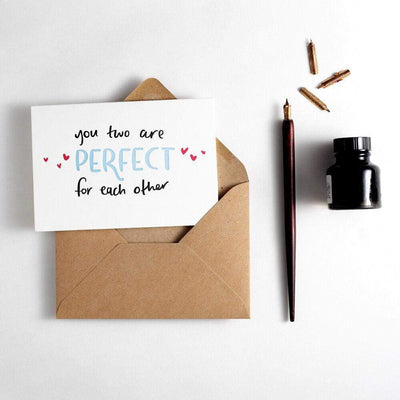 you two are
PERFECT
for each other